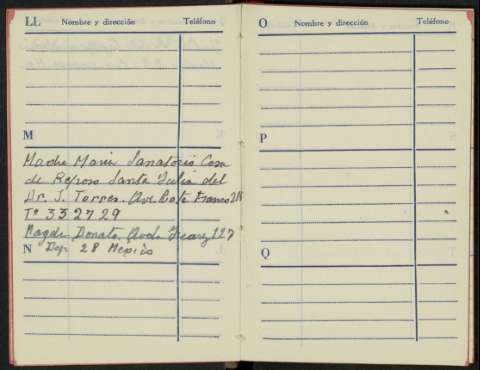 LL Nombre y dirección Teléfono
M
Madre Maria Sanatorio Casa
de Reposo Santa Julia del
Dr. J. Torres. Ave
Tº 332729
Magda Donato, Avda Juarez 127
N Dep. 28 Mexico
O Nombre y dirección Teléfono
P
Q